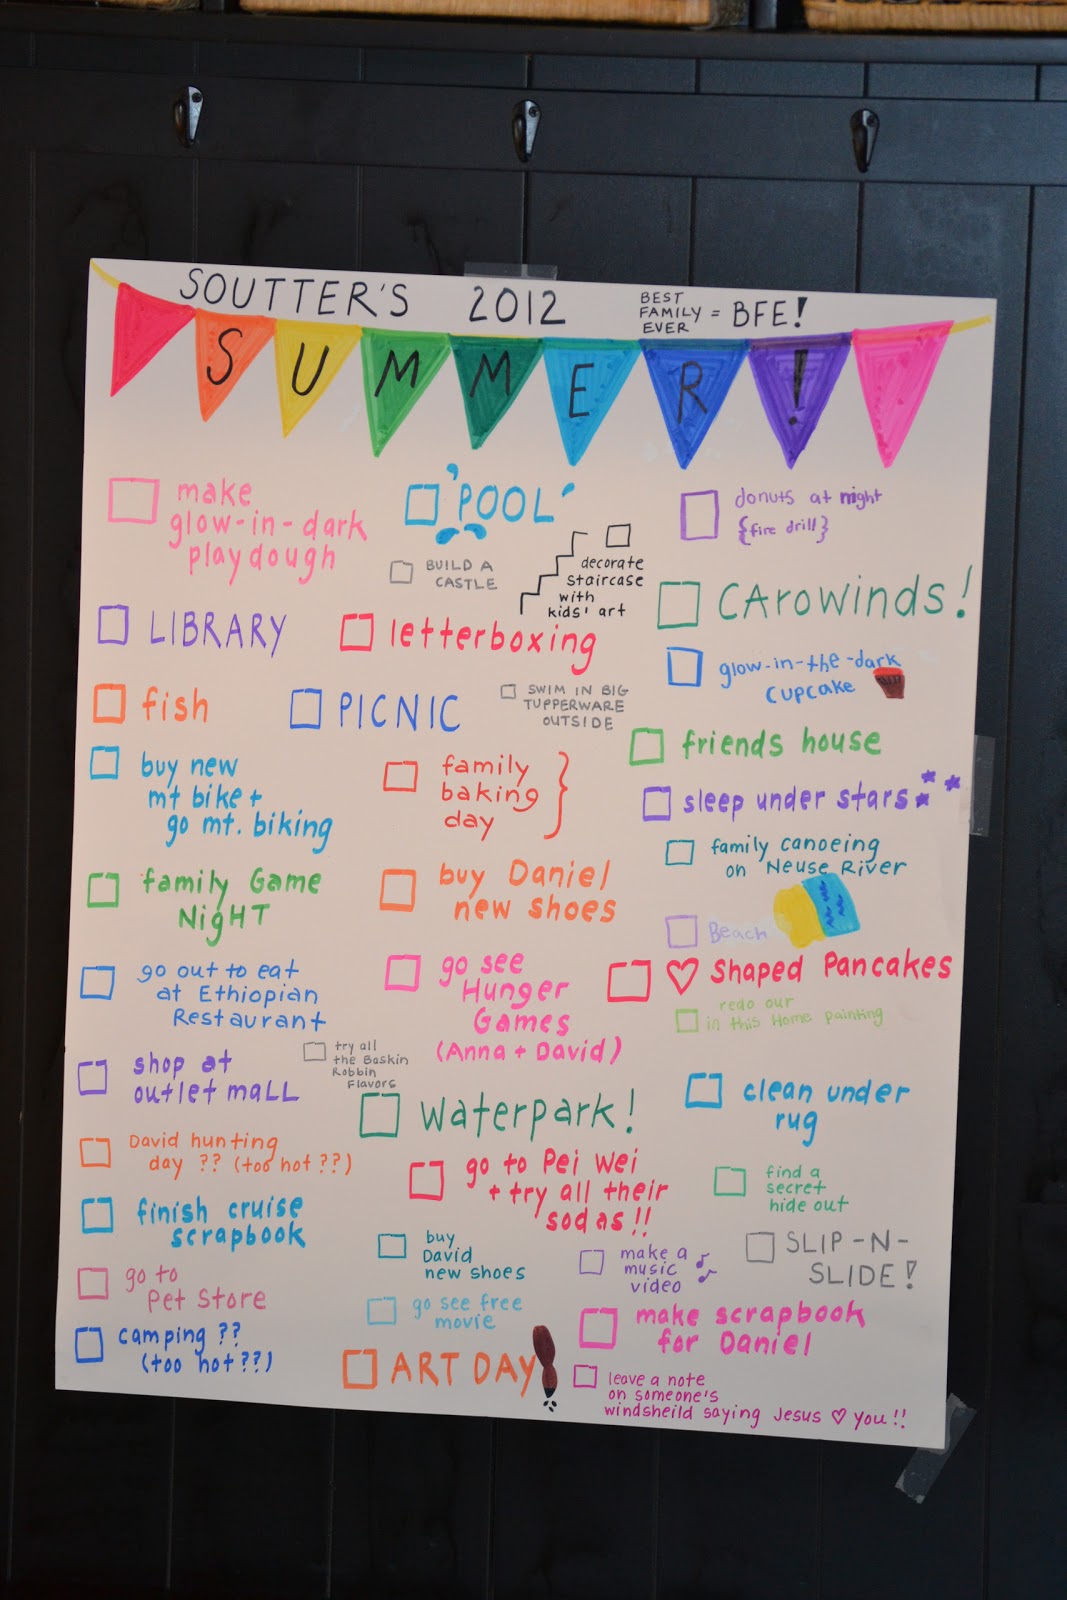 SOUTTER'S 2012
BEST
FAMILY = BFE!
EVER
SUMMER!
make
glow-in-dark
playdough
'POOL'
donuts at night
{fire drill}
BUILD A
CASTLE
decorate
staircase
with
kids' art
CAROWINDS!
LIBRARY
letterboxing
glow-in-the-dark
cupcake
fish
PICNIC
SWIM IN BIG
TUPPERWARE
OUTSIDE
friends house
buy new
mt bike +
go mt. biking
family
baking
day
sleep under stars
family canoeing
on Neuse River
family Game
NigHT
buy Daniel
new shoes
Beach
go out to eat
at Ethiopian
Restaurant
go see
Hunger
Games
(Anna + David)
♡ shaped Pancakes
redo our
in this Home painting
shop at
outlet maLL
try all
the Baskin
Robbin
Flavors
waterpark!
clean under
rug
David hunting
day ?? (too hot??)
go to Pei Wei
+ try all their
sodas!!
find a
secret
hide out
finish cruise
scrapbook
buy
David
new shoes
make a
music
video
SLIP-N-
SLIDE!
go to
Pet Store
go see free
movie
make scrapbook
for Daniel
camping ??
(too hot??)
ART DAY
leave a note
on someone's
windsheild saying Jesus ♡ you!!